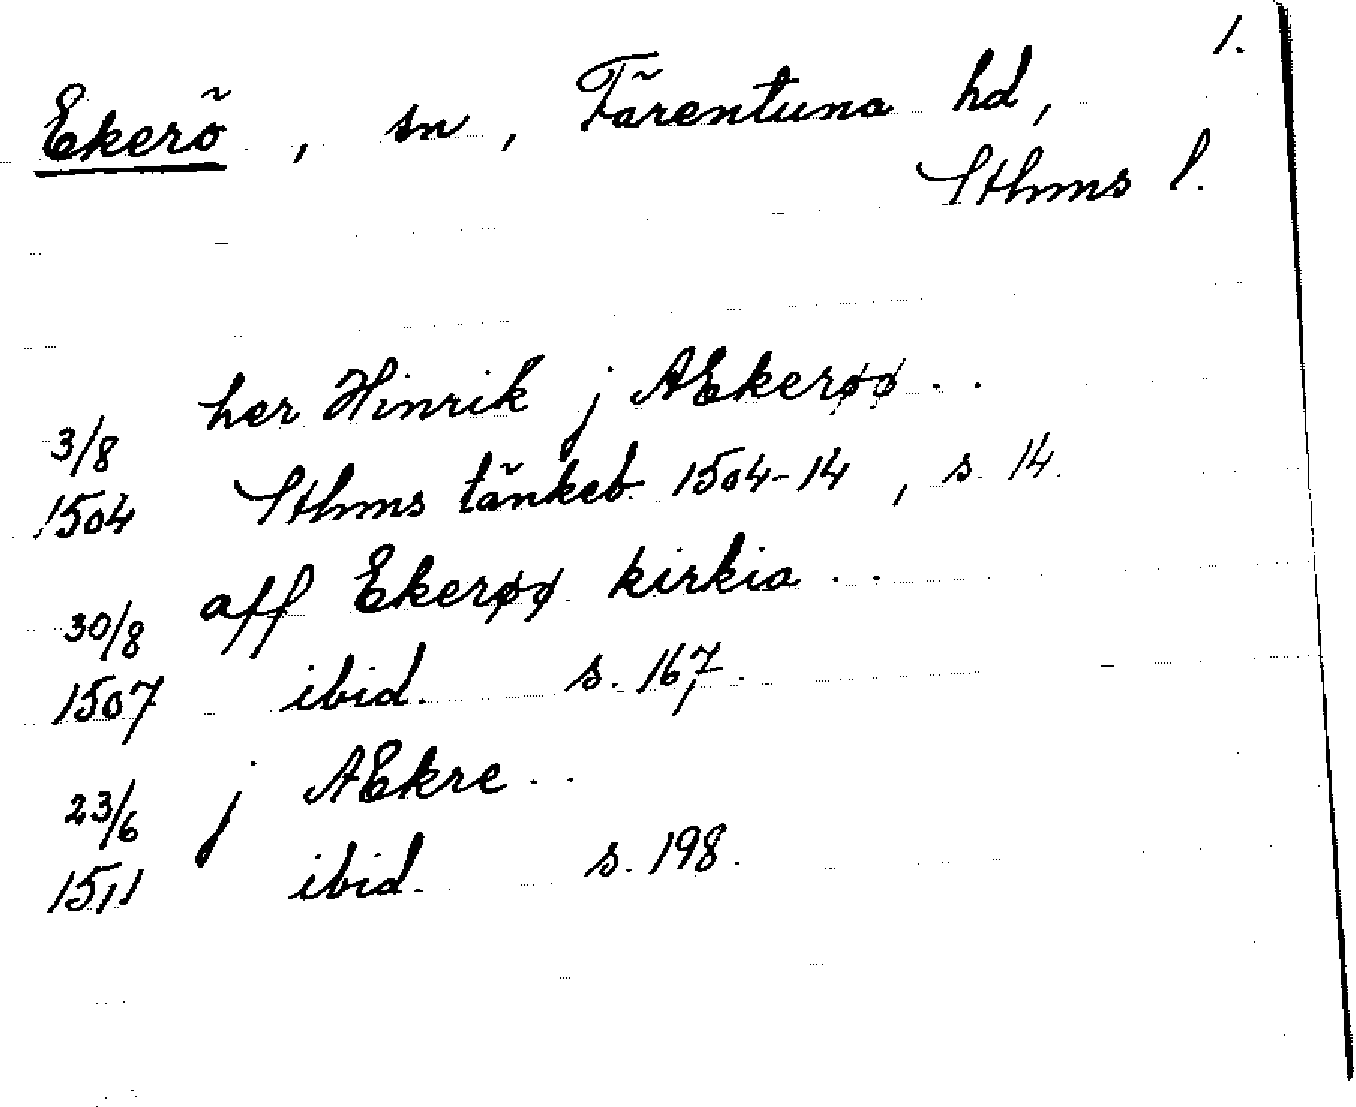 1.
Ekerö, sn, Färentuna hd,
Sthms l.
her Hinrik j AEkerøø . .
3/8
1504 Sthms tänkeb. 1504-14, s. 14.
aff Ekerøø kirkia . .
30/8
1507 ibid. s. 167.
23/6 j AEkre . .
1511 ibid. s. 198.